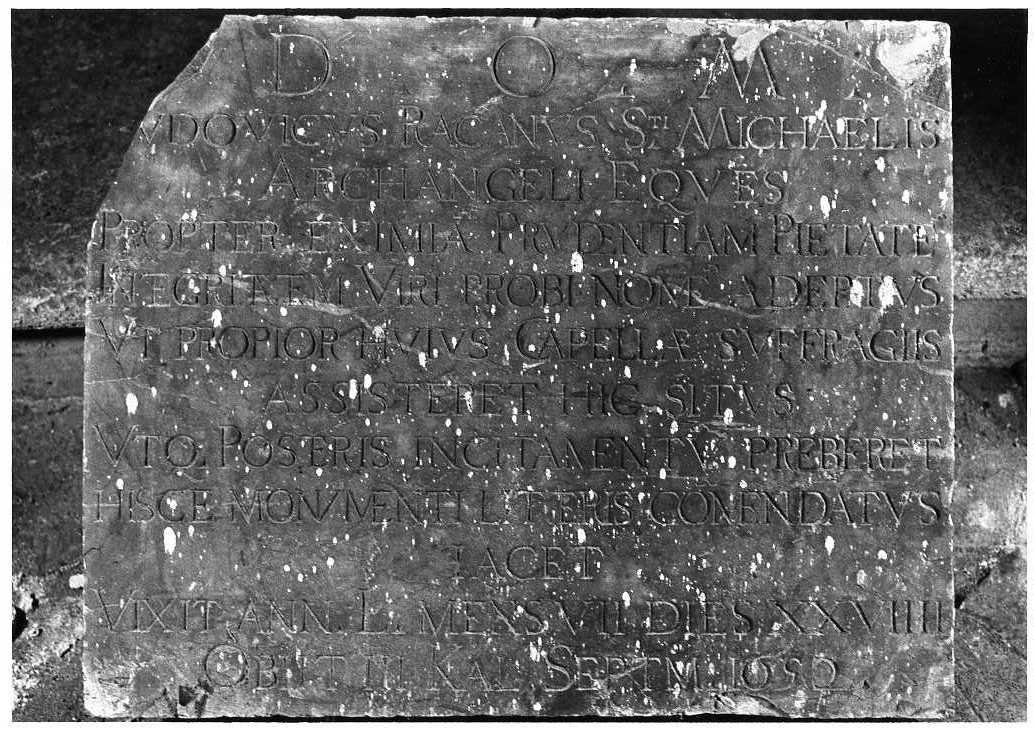 D O M
VDOVICVS RACANVS STI MICHAELIS
ARCHANGELI EQVES
PROPTER EXIMIĀ PRVDENTIAM PIETATĒ
INTEGRITATEM VIRI PROBI NOMĒ ADEPTVS
VT PROPIOR HVIVS CAPELLÆ SVFFRAGIIS
ASSISTERET HIC SITVS
VTQ POSTERIS INCITAMENTV̄ PREBERET
HISCE MONVMENTI LITTERIS COM̄ENDATVS
IACET
VIXIT ANN. L. MENS VII DIES XXVIIII
OBIIT III KAL SEPTM 1650